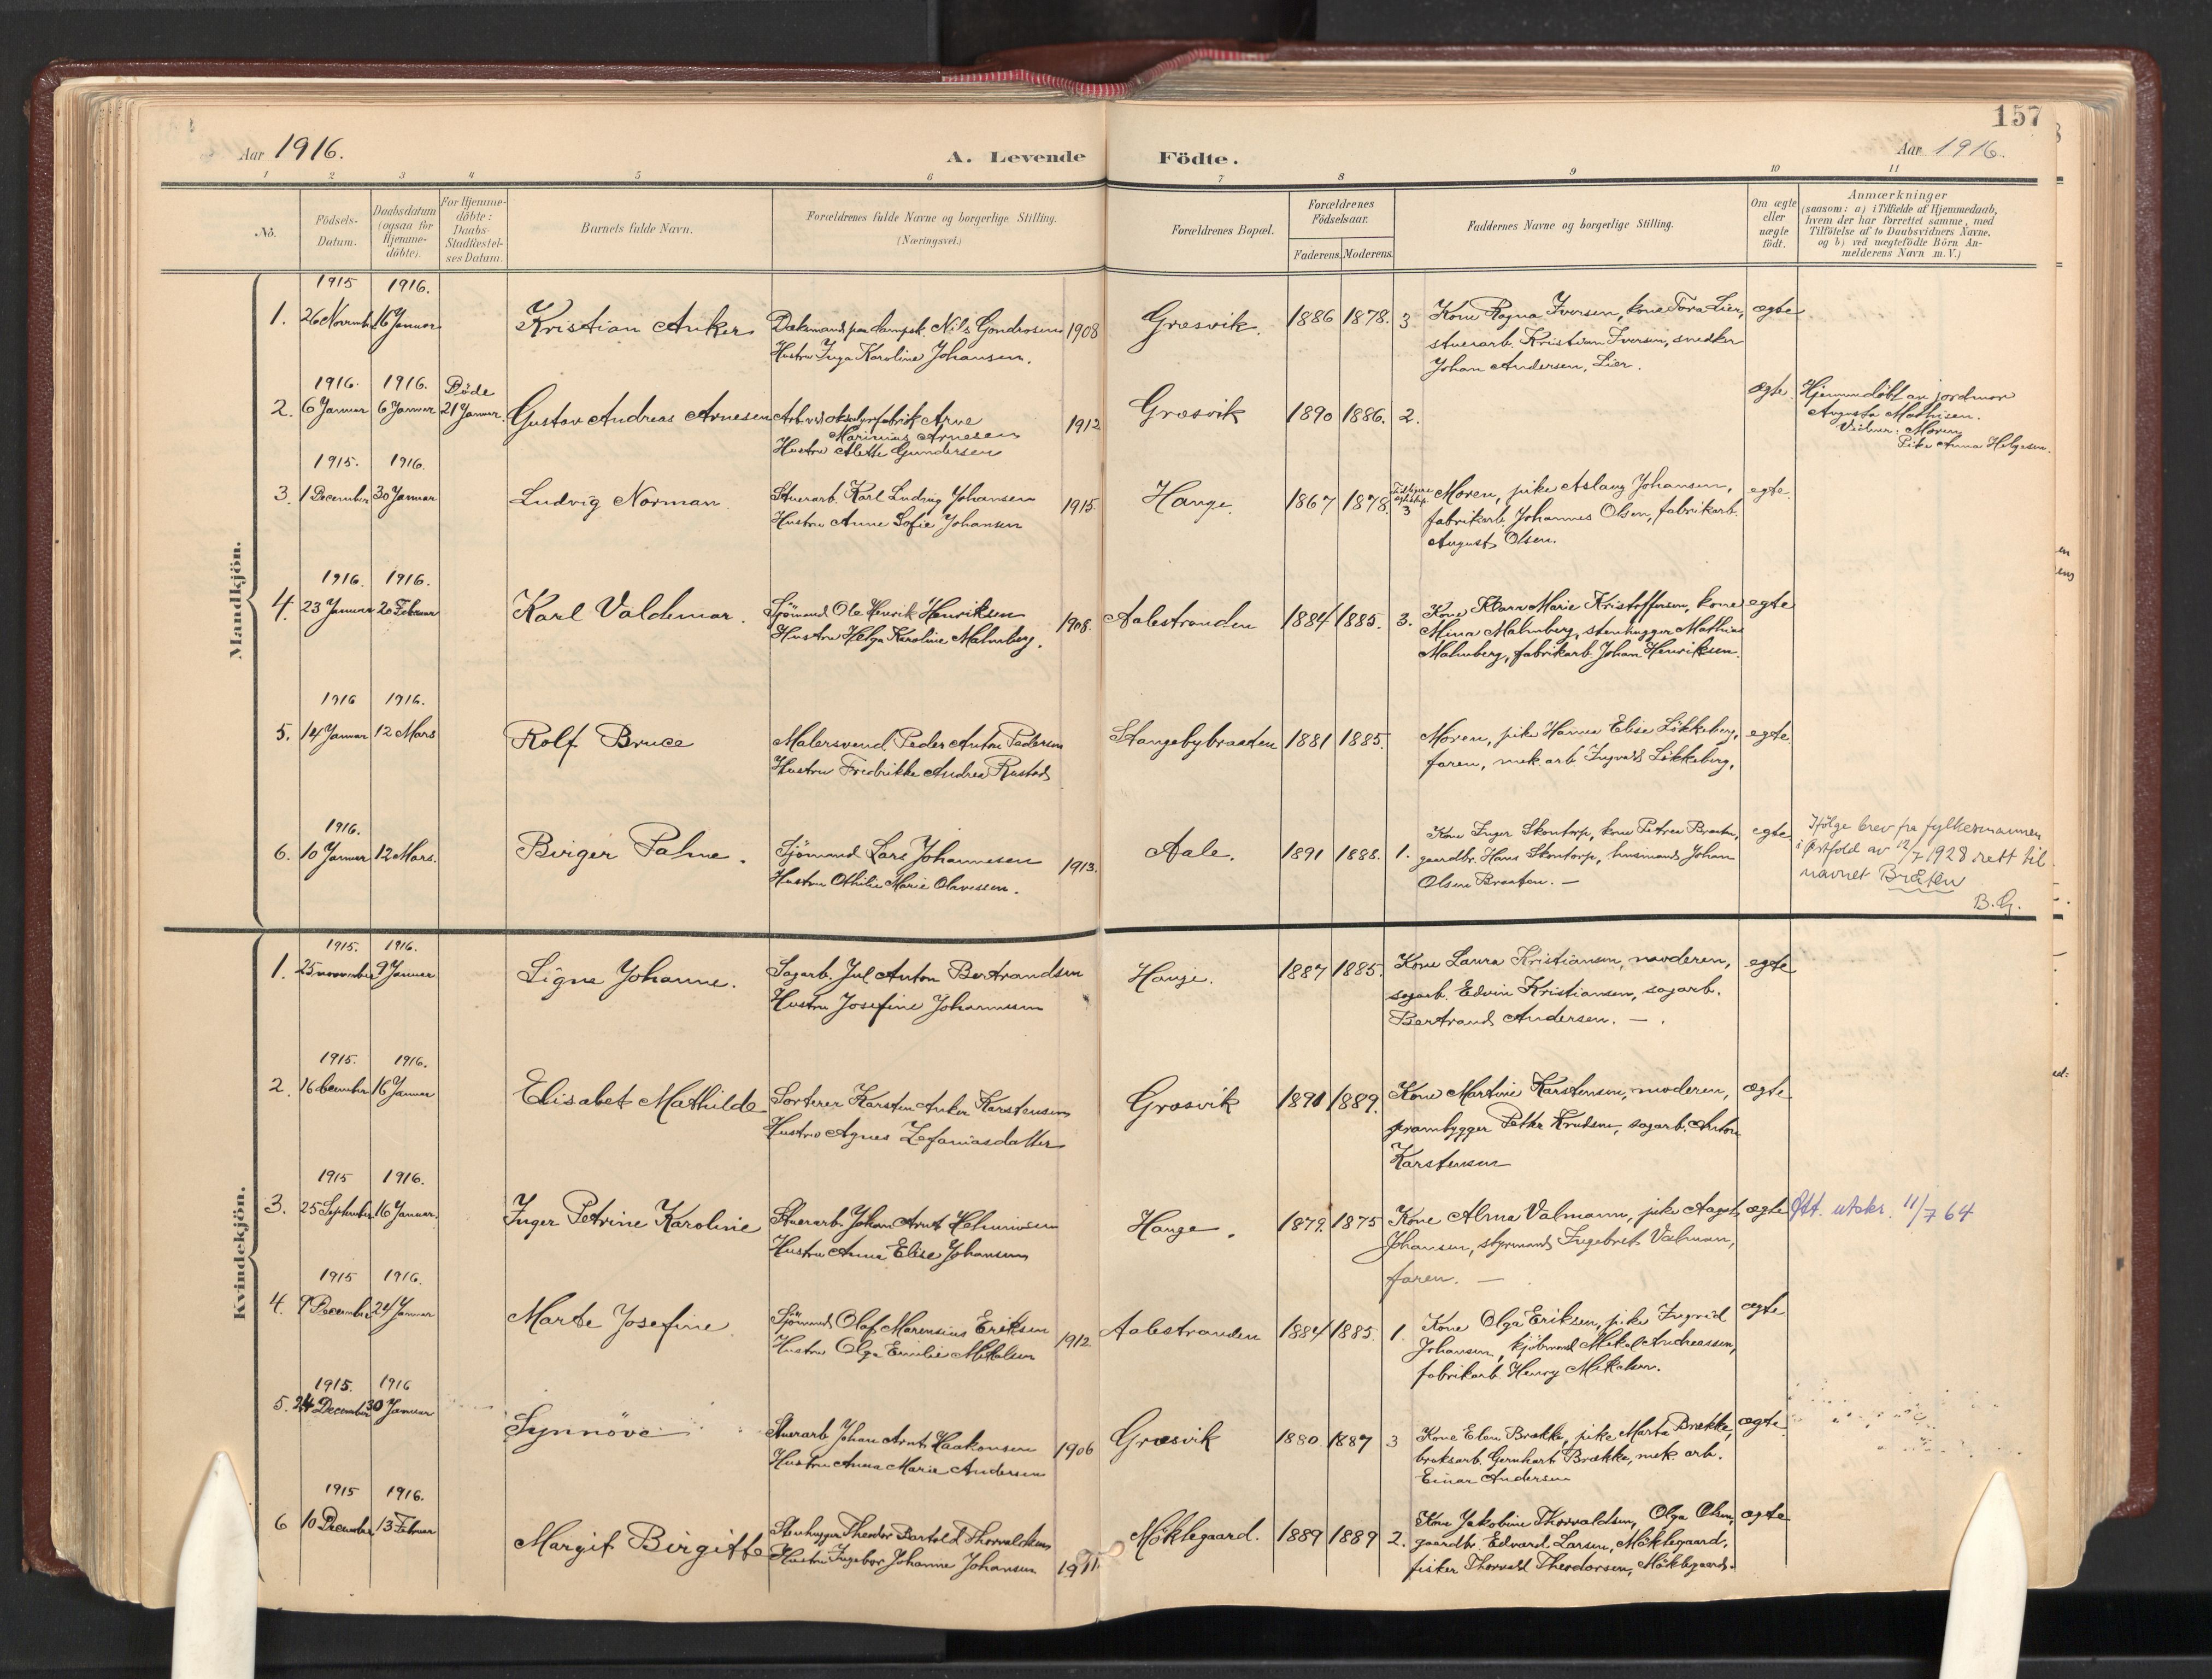 157
Aar 1916.
A. Levende Födte.
Aar 1916.
1 2 3 4 5 6 7 8 9 10 11
No.
Födsels-
Datum.
Daabsdatum
(ogsaa for
Hjemme-
döbte).
For Hjemme-
döbte:
Daabs-
Stadfæstel-
ses Datum.
Barnets fulde Navn.
Forældrenes fulde Navne og borgerlige Stilling.
(Næringsvei.)
Forældrenes Bopæl.
Forældrenes
Födselsaar.
Faderens. Moderens.
Faddernes Navne og borgerlige Stilling.
Om ægte
eller
uægte
födt.
Anmærkninger
(saasom: a) i Tilfælde af Hjemmedaab,
hvem der har forrettet samme, med
Tilföielse af to Daabsvidners Navne,
og b) ved uægtefödte Börn An-
melderens Navn m. V.)
Mandkjön.
1915 1916.
1. 26 Novemb. 16 Januar
Kristian Anker
Dæksmand paa dampsk. Nils Gondrosen 1908
Hustru Inga Karoline Johansen.
Græsvik. 1886 1878. 3
Kone Ragna Iversen, kone Tora Lier,
stuerarb. Kristian Iversen, snedker
Johan Andersen, Lier.
ægte
1916. 1916. Döde
2. 6 Januar 6 Januar 21 Januar.
Gustav Andreas Arnesen
Arb. ved Arne
Marinius Arnesen
Hustru Alette Gundersen
1912
Græsvik 1890 1886. 2.
ægte.
Hjemmedöbt av jordmor
Augusta Mathisen.
Vidner: Moren
Pike Anna Helgesen.
1915. 1916.
3. 1 December 30 Januar
Ludvig Norman
Stuerarb. Karl Ludvig Johansen
Hustru Anne Sofie Johansen
1915.
Hauge. 1867 1878. Tidligere
egteskap
3
Moren, pike Aslaug Johansen,
fabrikarb. Johannes Olsen, fabrikarb.
August Olsen.
egte.
1916. 1916.
4. 23 Januar 20 Februar
Karl Valdemar.
Sjömand Ole Henrik Henriksen
Hustru Helga Karoline Malmberg.
1908.
Aalestranden 1884 1885. 3.
Kone Klara Marie Kristoffersen, kone
Mina Malmberg, stenhugger Mathias
Malmberg, fabrikarb. Johan Henriksen.
egte
1916 1916.
5. 14 Januar 12 Mars
Rolf Bruce
Malersvend Peder Anton Pedersen
Hustru Fredrikke Andrea Rustad
Stangebybraaten 1881 1885.
Moren, pike Hanna Elise Lökkeberg,
faren, mek. arb. Ingvald Lökkeberg.
egte.
1916.
6. 10 Januar 12 Mars.
Birger Palme.
Sjömand Lars Johannesen
Hustru Othilie Marie Olavesen.
1913.
Aale. 1891 1888. 1.
Kone Inger Skontorp, kone Petrea Braaten,
gaardbr. Hans Skontorp, husmand Johan
Olsen Braaten. —
egte
Ifölge brev fra fylkesmannen
i Østfold av 12/7 1928 rett til
navnet Bråten
B. G.
Kvindekjön.
1915. 1916.
1. 25 november 9 Januar
Signe Johanne.
Sagarb. Jul Anton Bertrandsen
Hustru Josefine Johannesen
Hauge. 1887 1885.
Kone Laura Kristiansen, moderen,
sagarb. Edvin Kristiansen, sagarb.
Bertrand Andersen. —
egte
1915. 1916.
2. 16 December 16 Januar
Elisabet Mathilde
Sorterer Karsten Anker Karstensen
Hustru Agnes Zefaniasdatter
Græsvik 1891 1889.
Kone Martine Karstensen, moderen,
prambygger Petter Knudsen, sagarb. Anton
Karstensen
ægte
1915 1916.
3. 25 September 16 Januar.
Inger Petrine Karoline
Stuerarb. Johan Arnt
Hustru Anna Elise Johansen
Hauge. 1879. 1875
Kone Alma Valmann, pike Aagot
Johansen, styrmand Ingebret Valman,
faren. —
ægte
Att. utskr. 11/7 64
1915 1916.
4. 9 December 24 Januar
Marte Josefine
Sjömand Olaf Marensius Eriksen
Hustru Olga Emilie Mikalsen
1912.
Aalestranden 1884 1885. 1
Kone Olga Eriksen, pike Ingrid
Johansen, kjöbmand Mikal Andreassen,
fabrikarb. Henry Mikalsen.
ægte
1915. 1916
5. 24 December 30 Januar
Synnöve
Stuerarb. Johan Arnt Haakonsen
Hustru Anna Marie Andersen
1906
Græsvik 1880 1887 3
Kone Elen Brække, pike Marta Brække,
bruksarb. Gernhart Brække, mek. arb.
Einar Andersen
ægte.
1915 1916.
6 10 December 13 Februar
Margit Birgitte
Stenhugger Theodor Bartold Thorvaldsen
Hustru Ingebor Johanne Johansen
1911.
Möklegaard. 1889 1889 2.
Kone Jakobine Thorvaldsen, Olga Olsen,
gaardbr. Edvard Larsen, Möklegaard,
fisker Thorvald Theodorsen, Möklegaard.
ægte